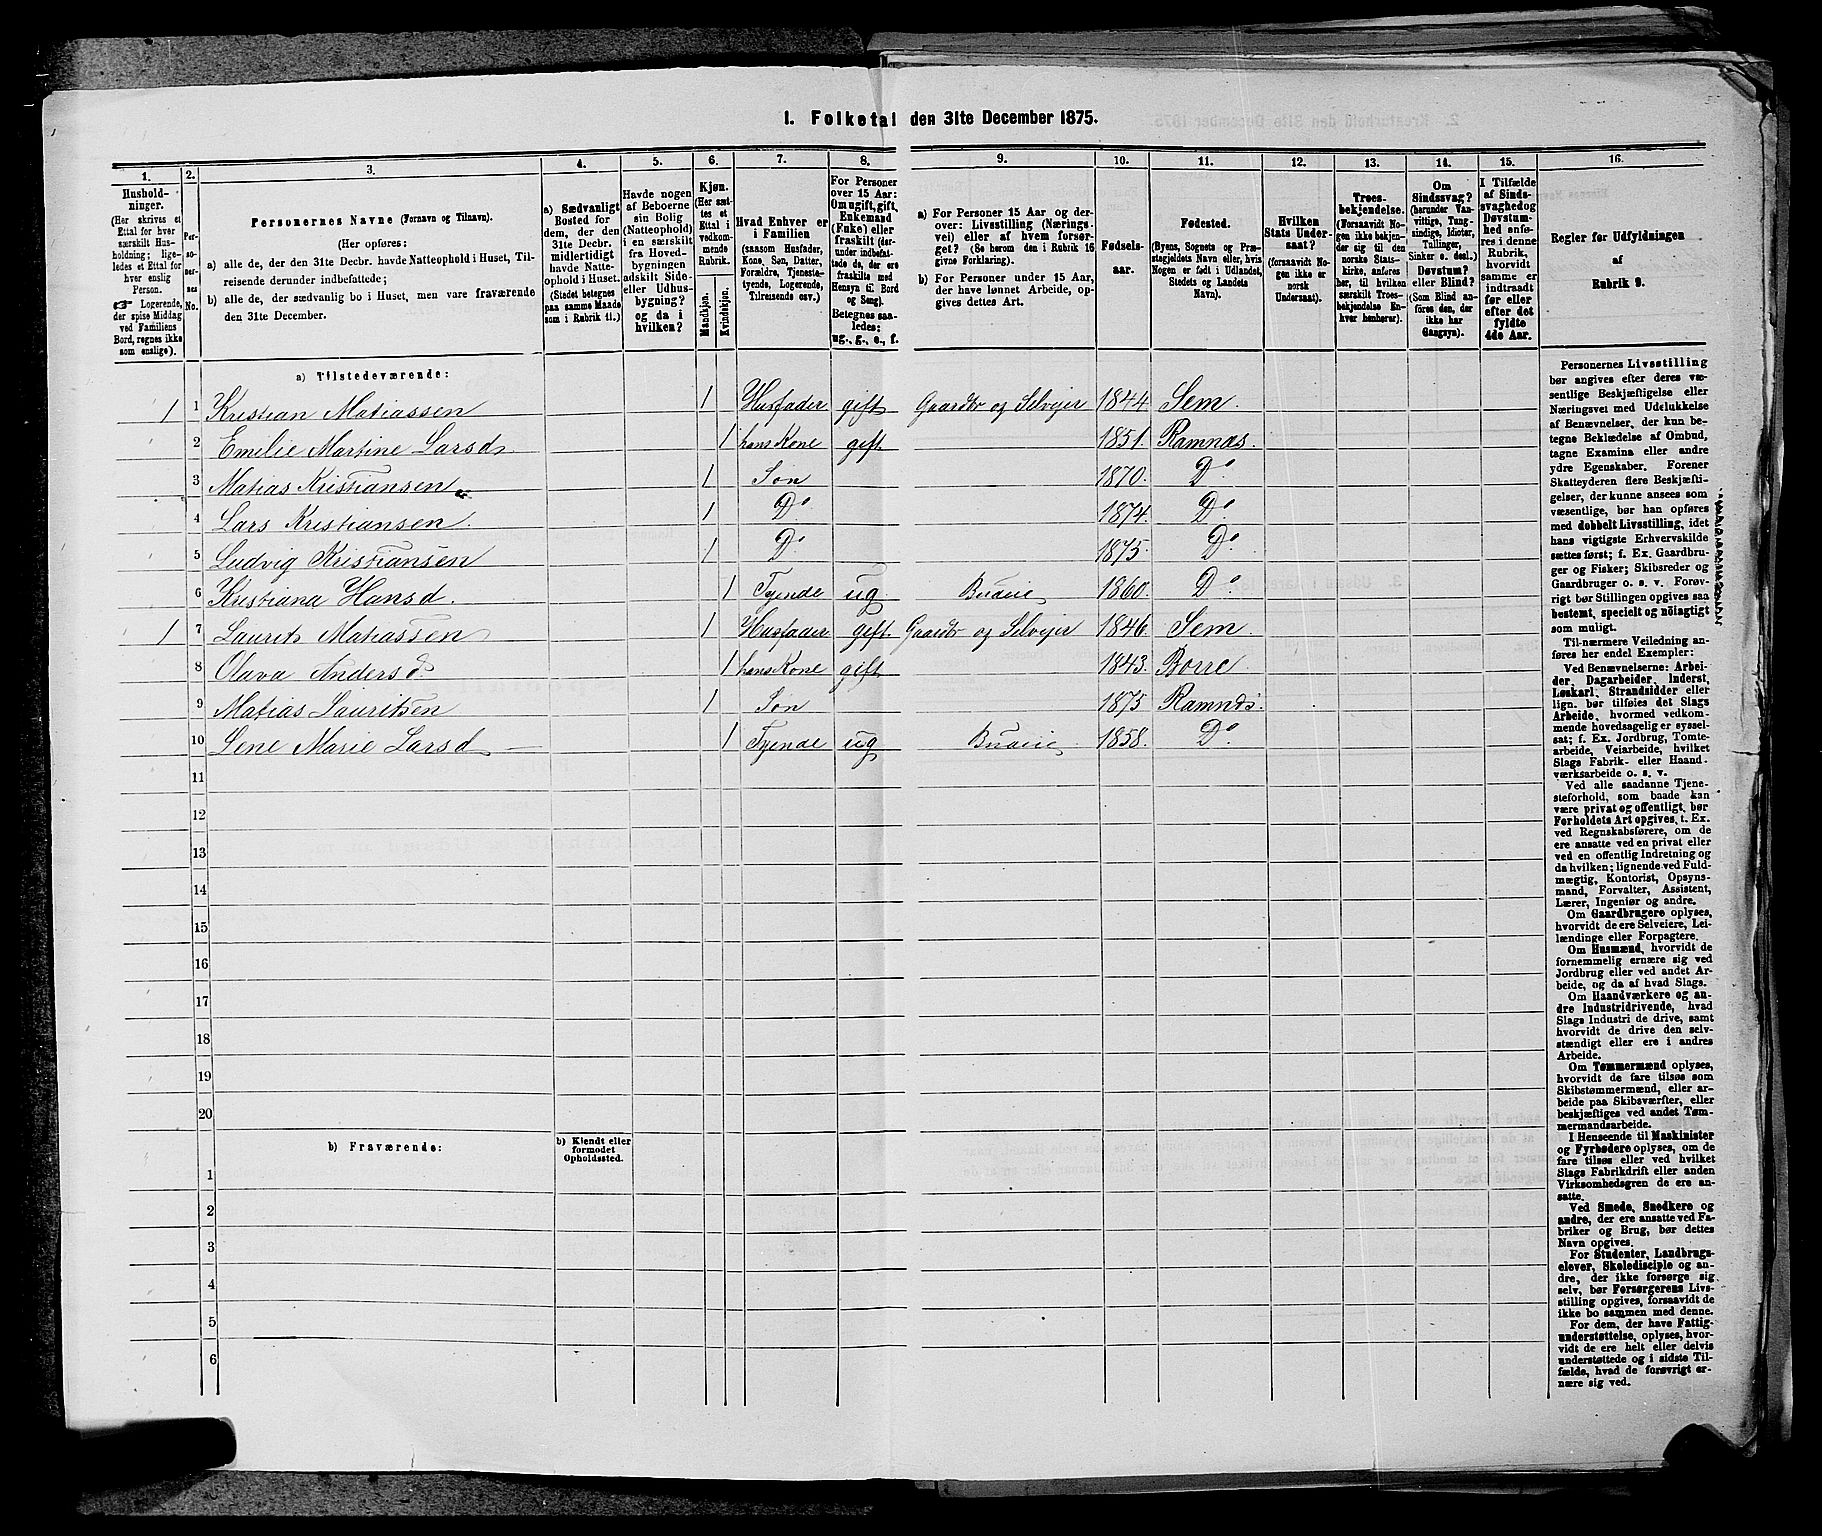 1. Folketal den 31te December 1875.
1. 2. 3. 4. 5. 6. 7. 8. 9. 10. 11. 12. 13. 14. 15. 16.
Hushold-
ninger.
(Her skrives et
Ettal for hver
særskilt Hus-
holdning; lige-
ledes et Ettal for
hver enslig
Person.
☞ Logerende,
der spise Middag
ved Familiens
Bord, regnes ikke
som enslige).
Per-
so-
ner-
nes
No.
Personernes Navne (Fornavn og Tilnavn).
(Her opføres:
a) alle de, der den 31te Decbr. havde Natteophold i Huset, Til-
reisende derunder indbefattede;
b) alle de, der sædvanlig bo i Huset, men vare fraværende
den 31te December.
a) Sædvanligt
Bosted for
dem, der den
31te Decbr.
midlertidigt
havde Natte-
ophold i Huset.
(Stedet betegnes
paa samme Maade
som i Rubrik 11.)
Havde nogen
af Beboerne
sin Bolig
(Natteophold)
i en særskilt
fra Hoved-
bygningen
adskilt Side-
eller Udhus-
bygning?
og da i
hvilken?
Kjøn.
(Her sæt-
tes et
Ettal i
vedkom-
mende
Rubrik.
Mandkjøn.
Kvindekjøn.
Hvad Enhver er
i Familien
(saasom Husfader,
Kone, Søn, Datter,
Forældre, Tjeneste-
tyende, Logerende,
Tilreisende osv.)
For Personer
over 15 Aar:
Om ugift, gift,
Enkemand
(Enke) eller
fraskilt (der-
under indbefat-
tede de, der ere
fraskilte med
Hensyn til Bord
og Seng).
Betegnes saa-
ledes:
ug., g., e., f.
a) For Personer 15 Aar og der-
over: Livsstilling (Nærings-
vei) eller af hvem forsør-
get? (Se herom den i Rubrik 16
givne Forklaring).
b) For Personer under 15 Aar,
der have lønnet Arbeide, op-
gives dettes Art.
Fødsels-
aar.
Fødested.
(Byens, Sognets og Præ-
stegjeldets Navn eller, hvis
Nogen er født i Udlandet,
Stedets og Landets
Navn).
Hvilken
Stats Under-
saat?
(forsaavidt No-
gen ikke er
norsk
Undersaat).
Troes-
bekjendelse.
(Forsaavidt No-
gen ikke bekjen-
der sig til den
norske Stats-
kirke, anføres
her, til hvilken
særskilt Troes-
bekjendelse En-
hver henhører).
Om
Sindssvag?
(herunder Van-
vittige, Tung-
sindige, Idioter,
Tullinger,
Sinker o. desl.)
Døvstum?
eller Blind?
(Som Blind an-
føres den, der
ikke har
Gangsyn).
I Tilfælde
af Sinds-
svaghed og
Døvstum-
hed anfø-
res i denne
Rubrik,
hvorvidt
samme er
indtraadt
før eller
efter det
fyldte
4de Aar.
Regler for Udfyldningen
af
Rubrik 9.
a) Tilstedeværende:
1 1 Kristian Matiassen 1 Husfader gift Gaardbr og Selvejer 1844. Sem.
2 Emelie Martine Larsd. 1 hans Kone gift 1851. Ramnæs.
3 Matias Kristiansen 1 Søn 1870. Do.
4 Lars Kristiansen. 1 Do. 1874. Do.
5 Ludvig Kristiansen 1 Do. 1875. Do.
6 Kristiana Hansd. 1 Tyende ug Budeie 1860. Do.
1 7 Laurits Matiassen 1 Husfader gift. Gaardbr og Selvejer 1846. Sem.
8 Olava Andersd. 1 hans Kone gift 1843. Borre.
9 Matias Lauritsen 1 Søn 1875 Ramnæs.
10 Lene Marie Larsd 1 Tyende ug Budeie 1858. Do.
11
12
13
14
15
16
17
18
19
20
b) Fraværende:
b) Kjendt eller
formodet
Opholdssted.
1
2
3
4
5
6
Personernes Livsstilling
bør angives efter deres væ-
sentlige Beskjæftigelse eller
Næringsvei med Udelukkelse
af Benævnelser, der kun be-
tegne Beklædelse af Ombud,
tagne Examina eller andre
ydre Egenskaber. Forener
Skatteyderen flere Beskjæfti-
gelser, der kunne ansees som
væsentlige, bør han opføres
med dobbelt Livsstilling, idet
hans vigtigste Erhvervskilde
sættes først; f. Ex. Gaardbru-
ger og Fisker; Skibsreder og
Gaardbruger o. s. v. Forøv-
rigt bør Stillingen opgives saa
bestemt, specielt og nøiagtigt
som muligt.
Til nærmere Veiledning an-
føres her endel Exempler:
Ved Benævnelserne: Arbei-
der, Dagarbeider, Inderst,
Løskarl, Strandsidder eller
lign. bør tilføies det Slags
Arbeide, hvormed vedkom-
mende hovedsagelig er syssel-
sat; f. Ex. Jordbrug, Tomte-
arbeide, Veiarbeide, hvilket
Slags Fabrik- eller Haand-
værksarbeide o. s. v.
Ved alle saadanne Tjene-
steforhold, som baade kan
være privat og offentligt, bør
Forholdets Art opgives, t. Ex.
ved Regnskabsførere, om de
ere ansatte ved en privat eller
ved en offentlig Indretning og
da hvilken; lignende ved Fuld-
mægtig, Kontorist, Opsyns-
mand, Forvalter, Assistent,
Lærer, Ingeniør og andre.
Om Gaardbrugere oplyses,
hvorvidt de ere Selveiere, Lei-
lændinge eller Forpagtere.
Om Husmænd, hvorvidt de
fornemmelig ernære sig ved
Jordbrug eller ved andet Ar-
beide, og da af hvad Slags.
Om Haandværkere og an-
dre Industridrivende, hvad
Slags Industri de drive, samt
hvorvidt de drive den selv-
stændigt eller ere i andres
Arbeide.
Om Tømmermænd oplyses,
hvorvidt de fare tilsøs som
Skibstømmermænd, eller ar-
beide paa Skibsværfter, eller
beskjæftiges ved andet Tøm-
mermandsarbeide.
I Henseende til Maskinister
og Fyrbødere oplyses, om de
fare tilsøs eller ved hvilket
Slags Fabrikdrift eller anden
Virksomhedsgren de ere an-
satte.
Ved Smede, Snedkere og
andre, der ere ansatte ved Fa-
briker og Brug, bør dettes
Navn opgives.
For Studenter, Landbrugs-
elever, Skoledisciple og an-
dre, der ikke forsørge sig
selv, bør Forsørgerens Livs-
stilling opgives, forsaavidt de
ikke bo sammen med denne.
For dem, der have Fattig-
understøttelse, oplyses, hvor-
vidt de ere helt eller delvis
understøttede og i sidste Til-
fælde, hvad de forøvrigt er-
nære sig ved.